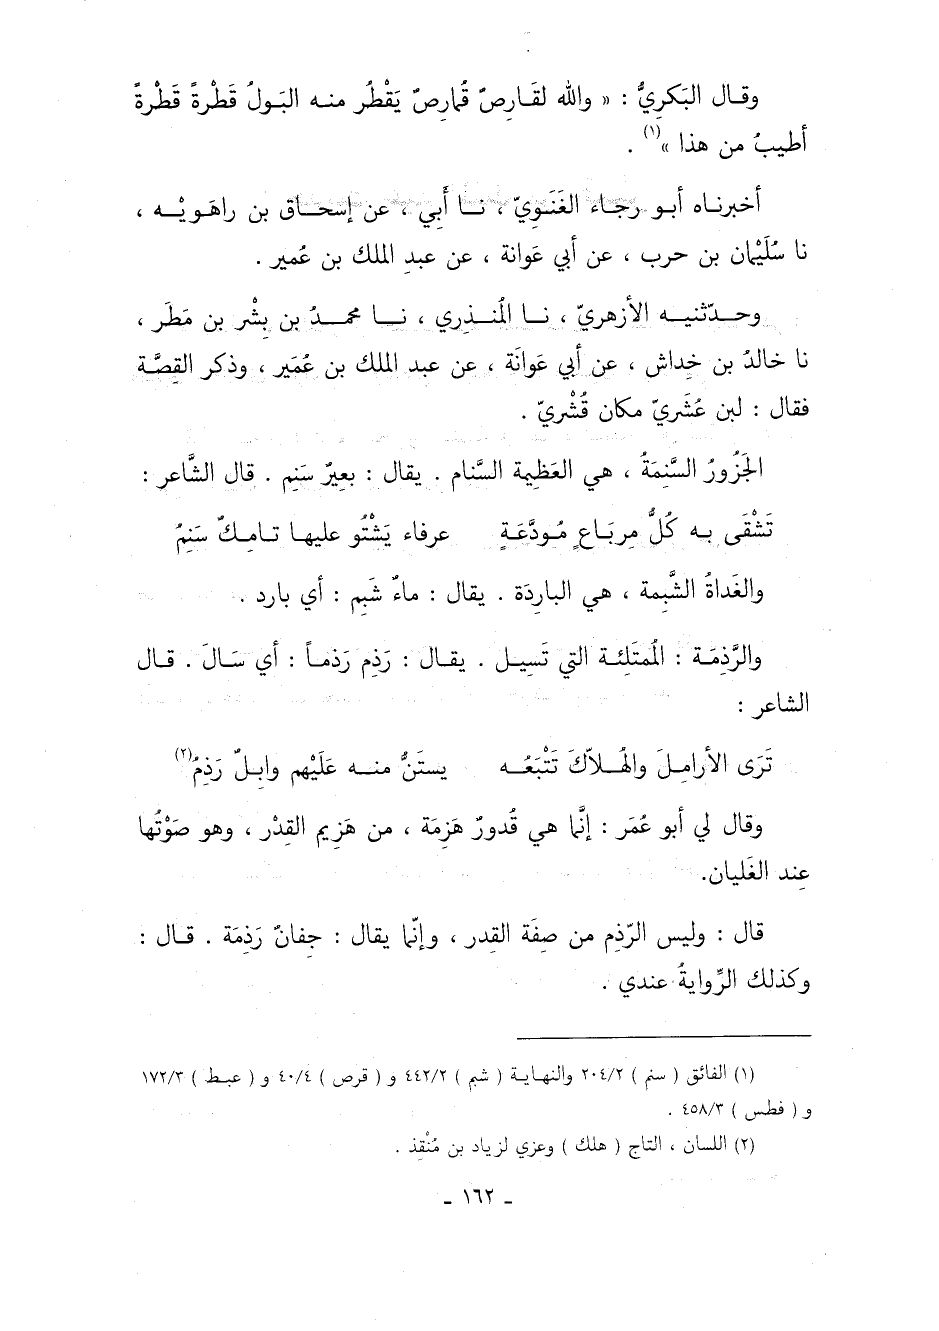 وقال البَكريُّ : « والله لقَارصٌ قُمارِصٌ يَقْطُر منه البَولُ قَطْرةً قَطْرةً
أطيبُ من هذا »(١) .
أخبرناه أبو رجاء الغَنَويّ ، نا أَبي ، عن إسحاق بن راهَويْه ،
نا سُلَيْمان بن حرب ، عن أبي عَوانة ، عن عبد الملك بن عُمير .
وحدّثنيه الأزهريّ ، نا المُنذري ، نا محمدُ بن بِشْر بن مَطَر ،
نا خالدُ بن خِداش ، عن أبي عَوانَة ، عن عبد الملك بن عُمَير ، وذكر القِصَّة
فقال : لبن عُشَريّ مكان قُشْريّ .
الجَزُورُ السَّنِمَةُ ، هي العَظِيمة السَّنام . يقال : بعيرٌ سَنِم . قال الشَّاعر :
تَشْقَى به كُلُّ مِربَاعٍ مُودَّعَةٍ عرفاء يَشْتُو عليها تامِكٌ سَنِمُ
والغَداةُ الشَّبِمة ، هي البارِدَة . يقال : ماءٌ شَبِم : أي بارد .
والرَّذِمَة : المُمتَلِئة التي تَسِيل . يقال : رَذِم رَذِماً : أي سَالَ . قال
الشاعر :
تَرَى الأرامِلَ والهُلاّكَ تَتْبَعُه يستَنُّ منه عَلَيْهم وابِلٌ رَذِمُ(٢)
وقال لي أبو عُمَر : إنَّما هي قُدورٌ هَزِمَة ، من هَزِيم القِدْر ، وهو صَوْتُها
عِند الغَليان.
قال : وليس الرّذِم من صِفَة القِدر ، وإنّما يقال : جِفانٌ رَذِمَة . قال :
وكذلك الرِّوايةُ عندي .
(١) الفائق ( سنم ) ٢٠٤/٢ والنهاية ( شبم ) ٤٤٢/٢ و ( قرص ) ٤٠/٤ و ( عبط ) ١٧٢/٣
و ( فطس ) ٤٥٨/٣ .
(٢) اللسان ، التاج ( هلك ) وعزي لزياد بن مُنْقِذ .
ـ ١٦٢ ـ